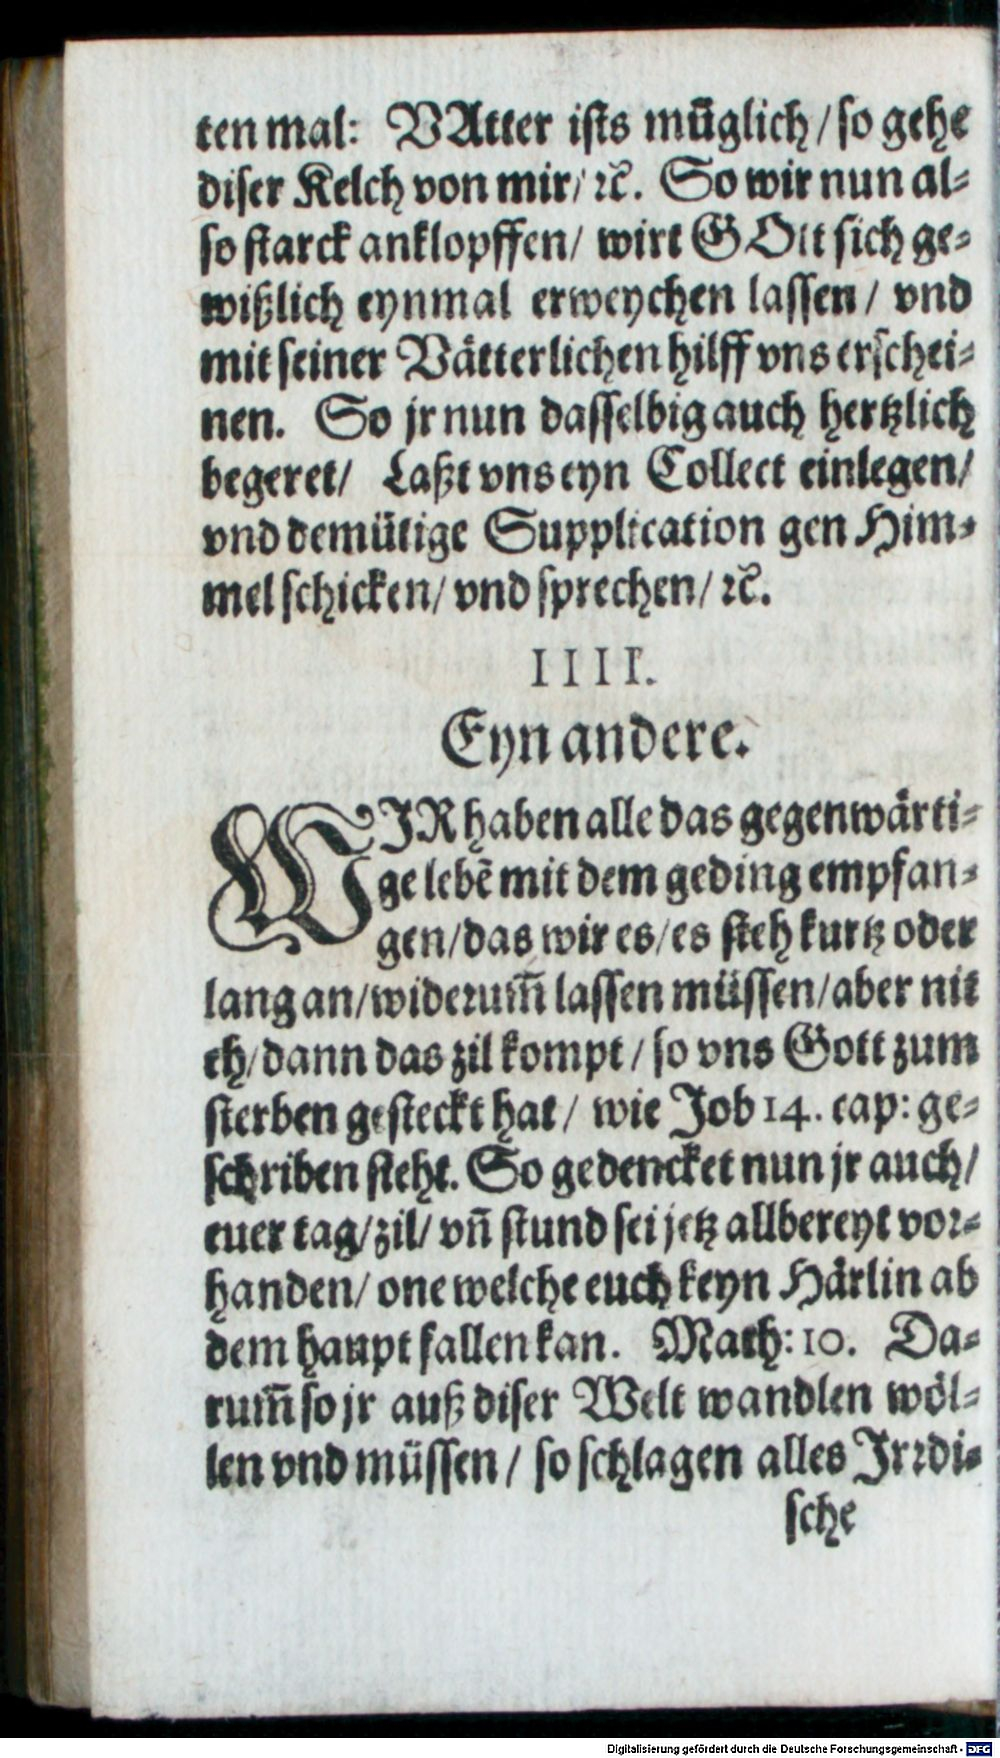 ten mal: VAtter ists müglich / so gehe
diser Kelch von mir / ꝛc. So wir nun al-
so starck anklopffen / wirt GOtt sich ge-
wißlich eynmal erweychen lassen / vnd
mit seiner Vätterlichen hilff vns erschei-
nen. So jr nun dasselbig auch hertzlich
begeret / Laßt vns eyn Collect einlegen /
vnd demütige Supplication gen Him-
mel schicken / vnd sprechen / ꝛc.
IIII.
Eyn andere.
WIR haben alle das gegenwärti-
ge lebẽ mit dem geding empfan-
gen / das wir es / es steh kurtz oder
lang an / widerum̃ lassen müssen / aber nit
eh / dann das zil kompt / so vns Gott zum
sterben gesteckt hat / wie Job 14. cap: ge-
schriben steht. So gedencket nun jr auch /
euer tag / zil / vñ stund sei jetz allbereyt vor-
handen / one welche euch keyn Härlin ab
dem haupt fallen kan. Math: 10. Da-
rum̃ so jr auß diser Welt wandlen wöl-
len vnd müssen / so schlagen alles Irrdi-
sche
Digitalisierung gefördert durch die Deutsche Forschungsgemeinschaft - DFG